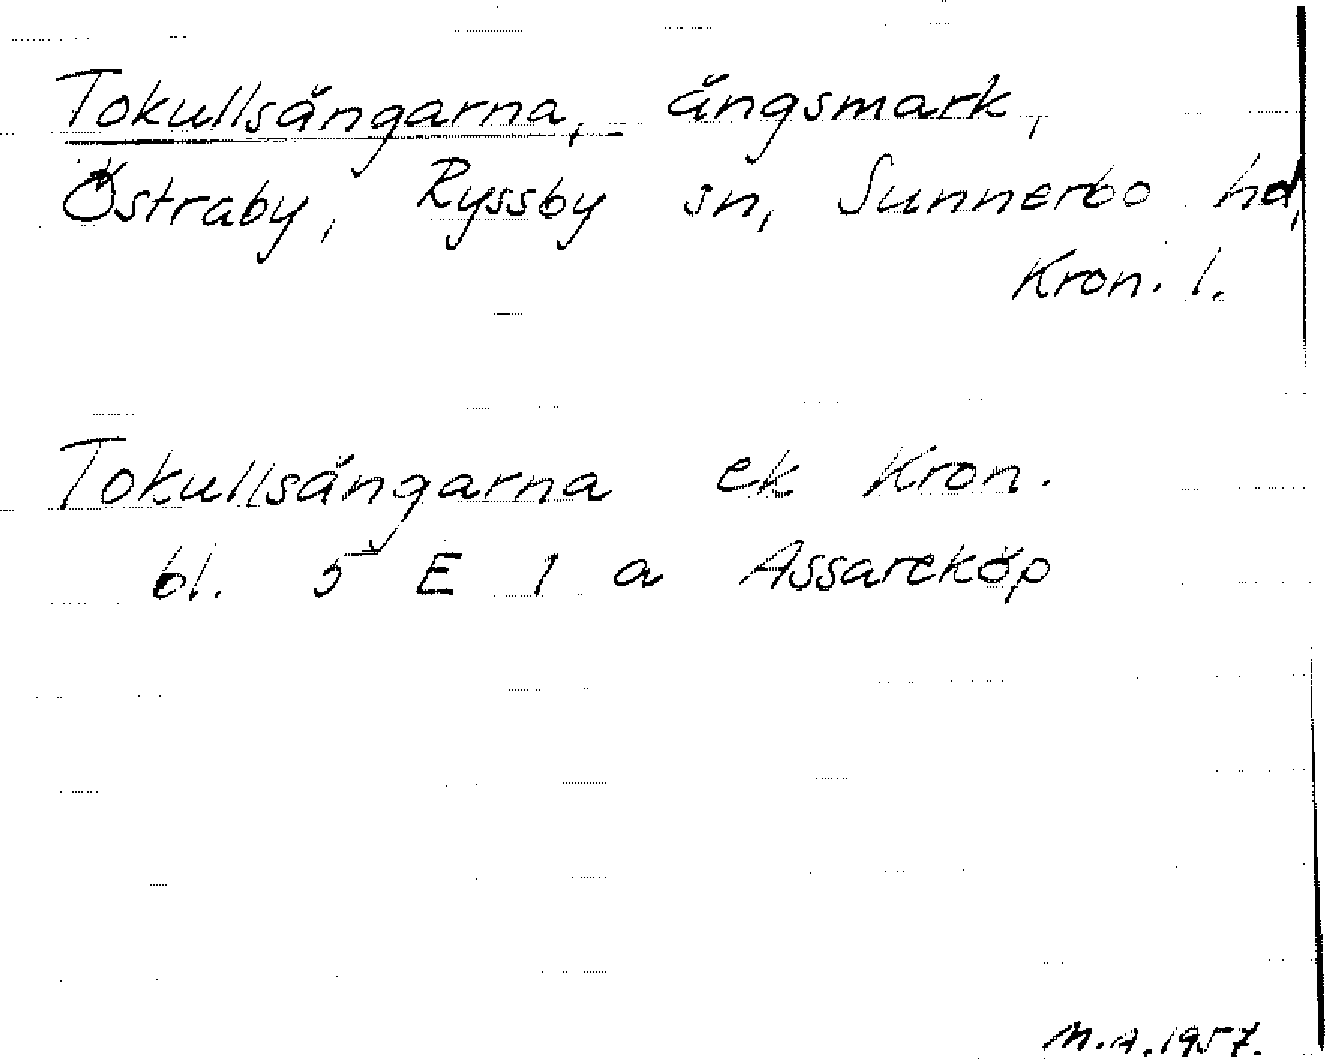 Tokullsängarna, ängsmark,
Östraby, Ryssby sn, Sunnerbo hd,
Kron. l.
Tokullsängarna ek Kron.
bl. 5 E 1 a Assareköp
M.A. 1957.